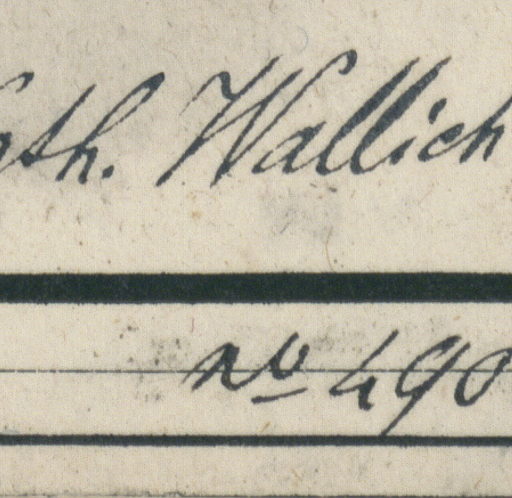 ath. Wallich
No 490